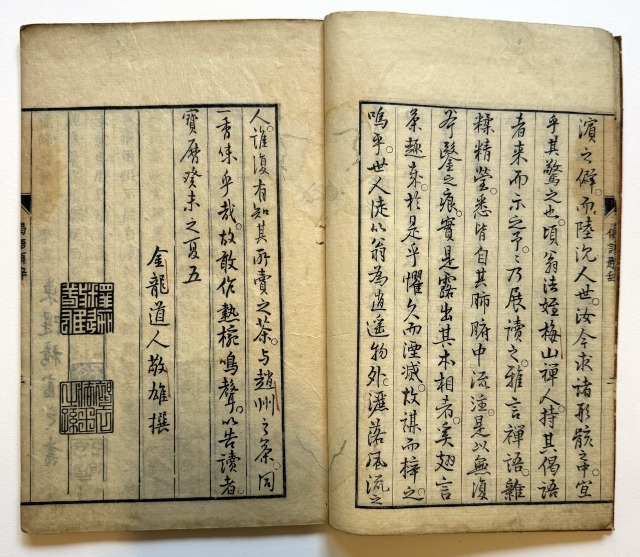 濱之僻。而陸沉人世。汝今求諸形骸之中宜
乎其驚之也。頃翁法姪梅山禪人。持其偈語
者来而示之予。予乃展讀之。雅言禪語。雜
糅精瑩。悉皆自其肺腑中流注。是以無復
斧鑿之痕。實是露出其本相者矣。翅言
茶趣来。於是乎懼久而湮滅。故謀而梓之
嗚乎。世人徒以翁為逍遥物外。灑落風流之
人。誰復有知其所賣之茶。与趙州之茶。同
一香味乎哉。故敢作熱椀鳴聲。以告讀者。
寶曆癸未之夏五
金龍道人敬雄撰